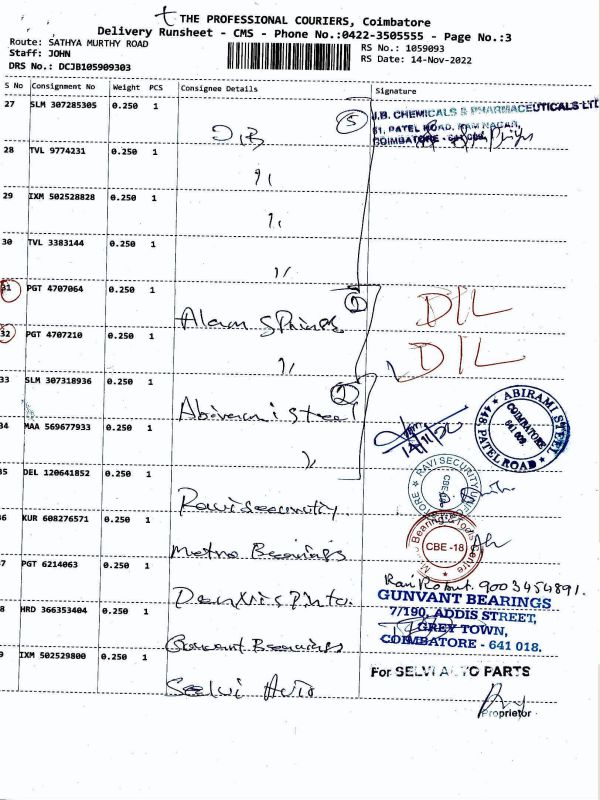 THE PROFESSIONAL COURIERS, Coimbatore
Delivery Runsheet - CMS - Phone No.:0422-3505555 - Page No.:3
Route: SATHYA MURTHY ROAD
Staff: JOHN
DRS No.: DCJB105909303
RS No.: 1059093
RS Date: 14-Nov-2022
S No Consignment No Weight PCS Consignee Details Signature
27 SLM 307285305 0.250 1 5
J.B. CHEMICALS & PHARMACEUTICALS LT
61, PATEL ROAD, RAM NAGAR,
COIMBATORE - 641 009.
28 TVL 9774231 0.250 1
29 IXM 502528828 0.250 1
30 TVL 3383144 0.250 1
31 PGT 4707064 0.250 1 Alam Springs DIL
32 PGT 4707210 0.250 1 DIL
33 SLM 307318936 0.250 1 2 Abirami Steel
ABIRAMI STEEL
448, PATEL ROAD
COIMBATORE
641 009.
34 MAA 569677933 0.250 1
14/11/22
35 DEL 120641852 0.250 1 Ravi Security
RAVI SECURITY
36 KUR 608276571 0.250 1 Metro Bearings
Bearing & Tools Centre
CBE -18
37 PGT 6214063 0.250 1
9003454891.
38 HRD 366353404 0.250 1 Bearings
GUNVANT BEARINGS
7/190, ADDIS STREET,
GREY TOWN,
COIMBATORE - 641 018.
39 IXM 502529800 0.250 1 Selvi Auto
For SELVI AUTO PARTS
Proprietor